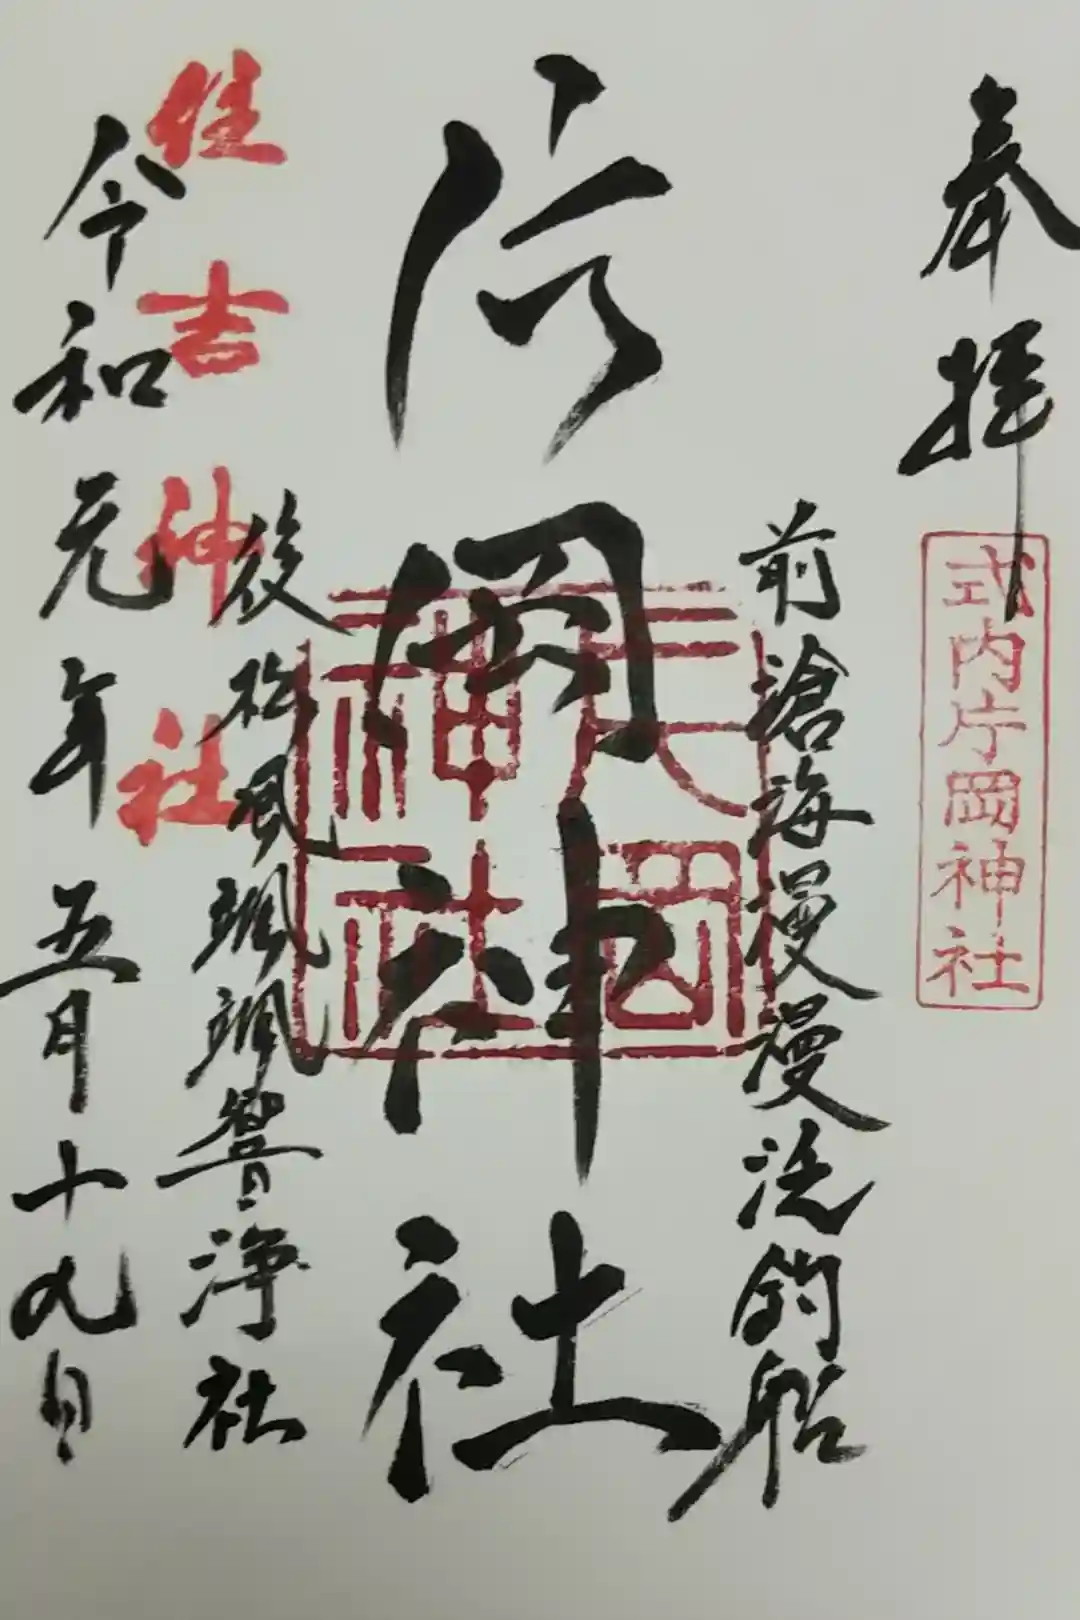 奉拝
式内庁岡神社
前滄海漫漫泛釣船
庁岡神社
庁岡
神社
後松風颯颯響浄社
住吉神社
令和元年五月十九日